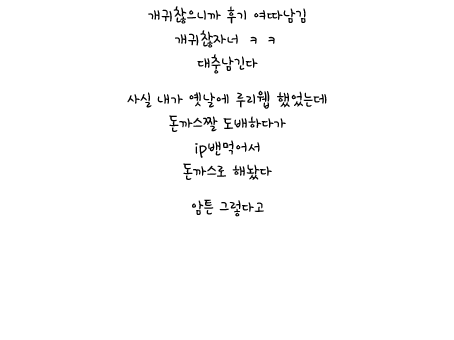 개귀찮으니까 후기 여따남김
개귀찮자너 ㅋ ㅋ
대충남긴다
사실 내가 옛날에 루리웹 했었는데
돈까스짤 도배하다가
ip밴먹어서
돈까스로 해놨다
암튼 그렇다고